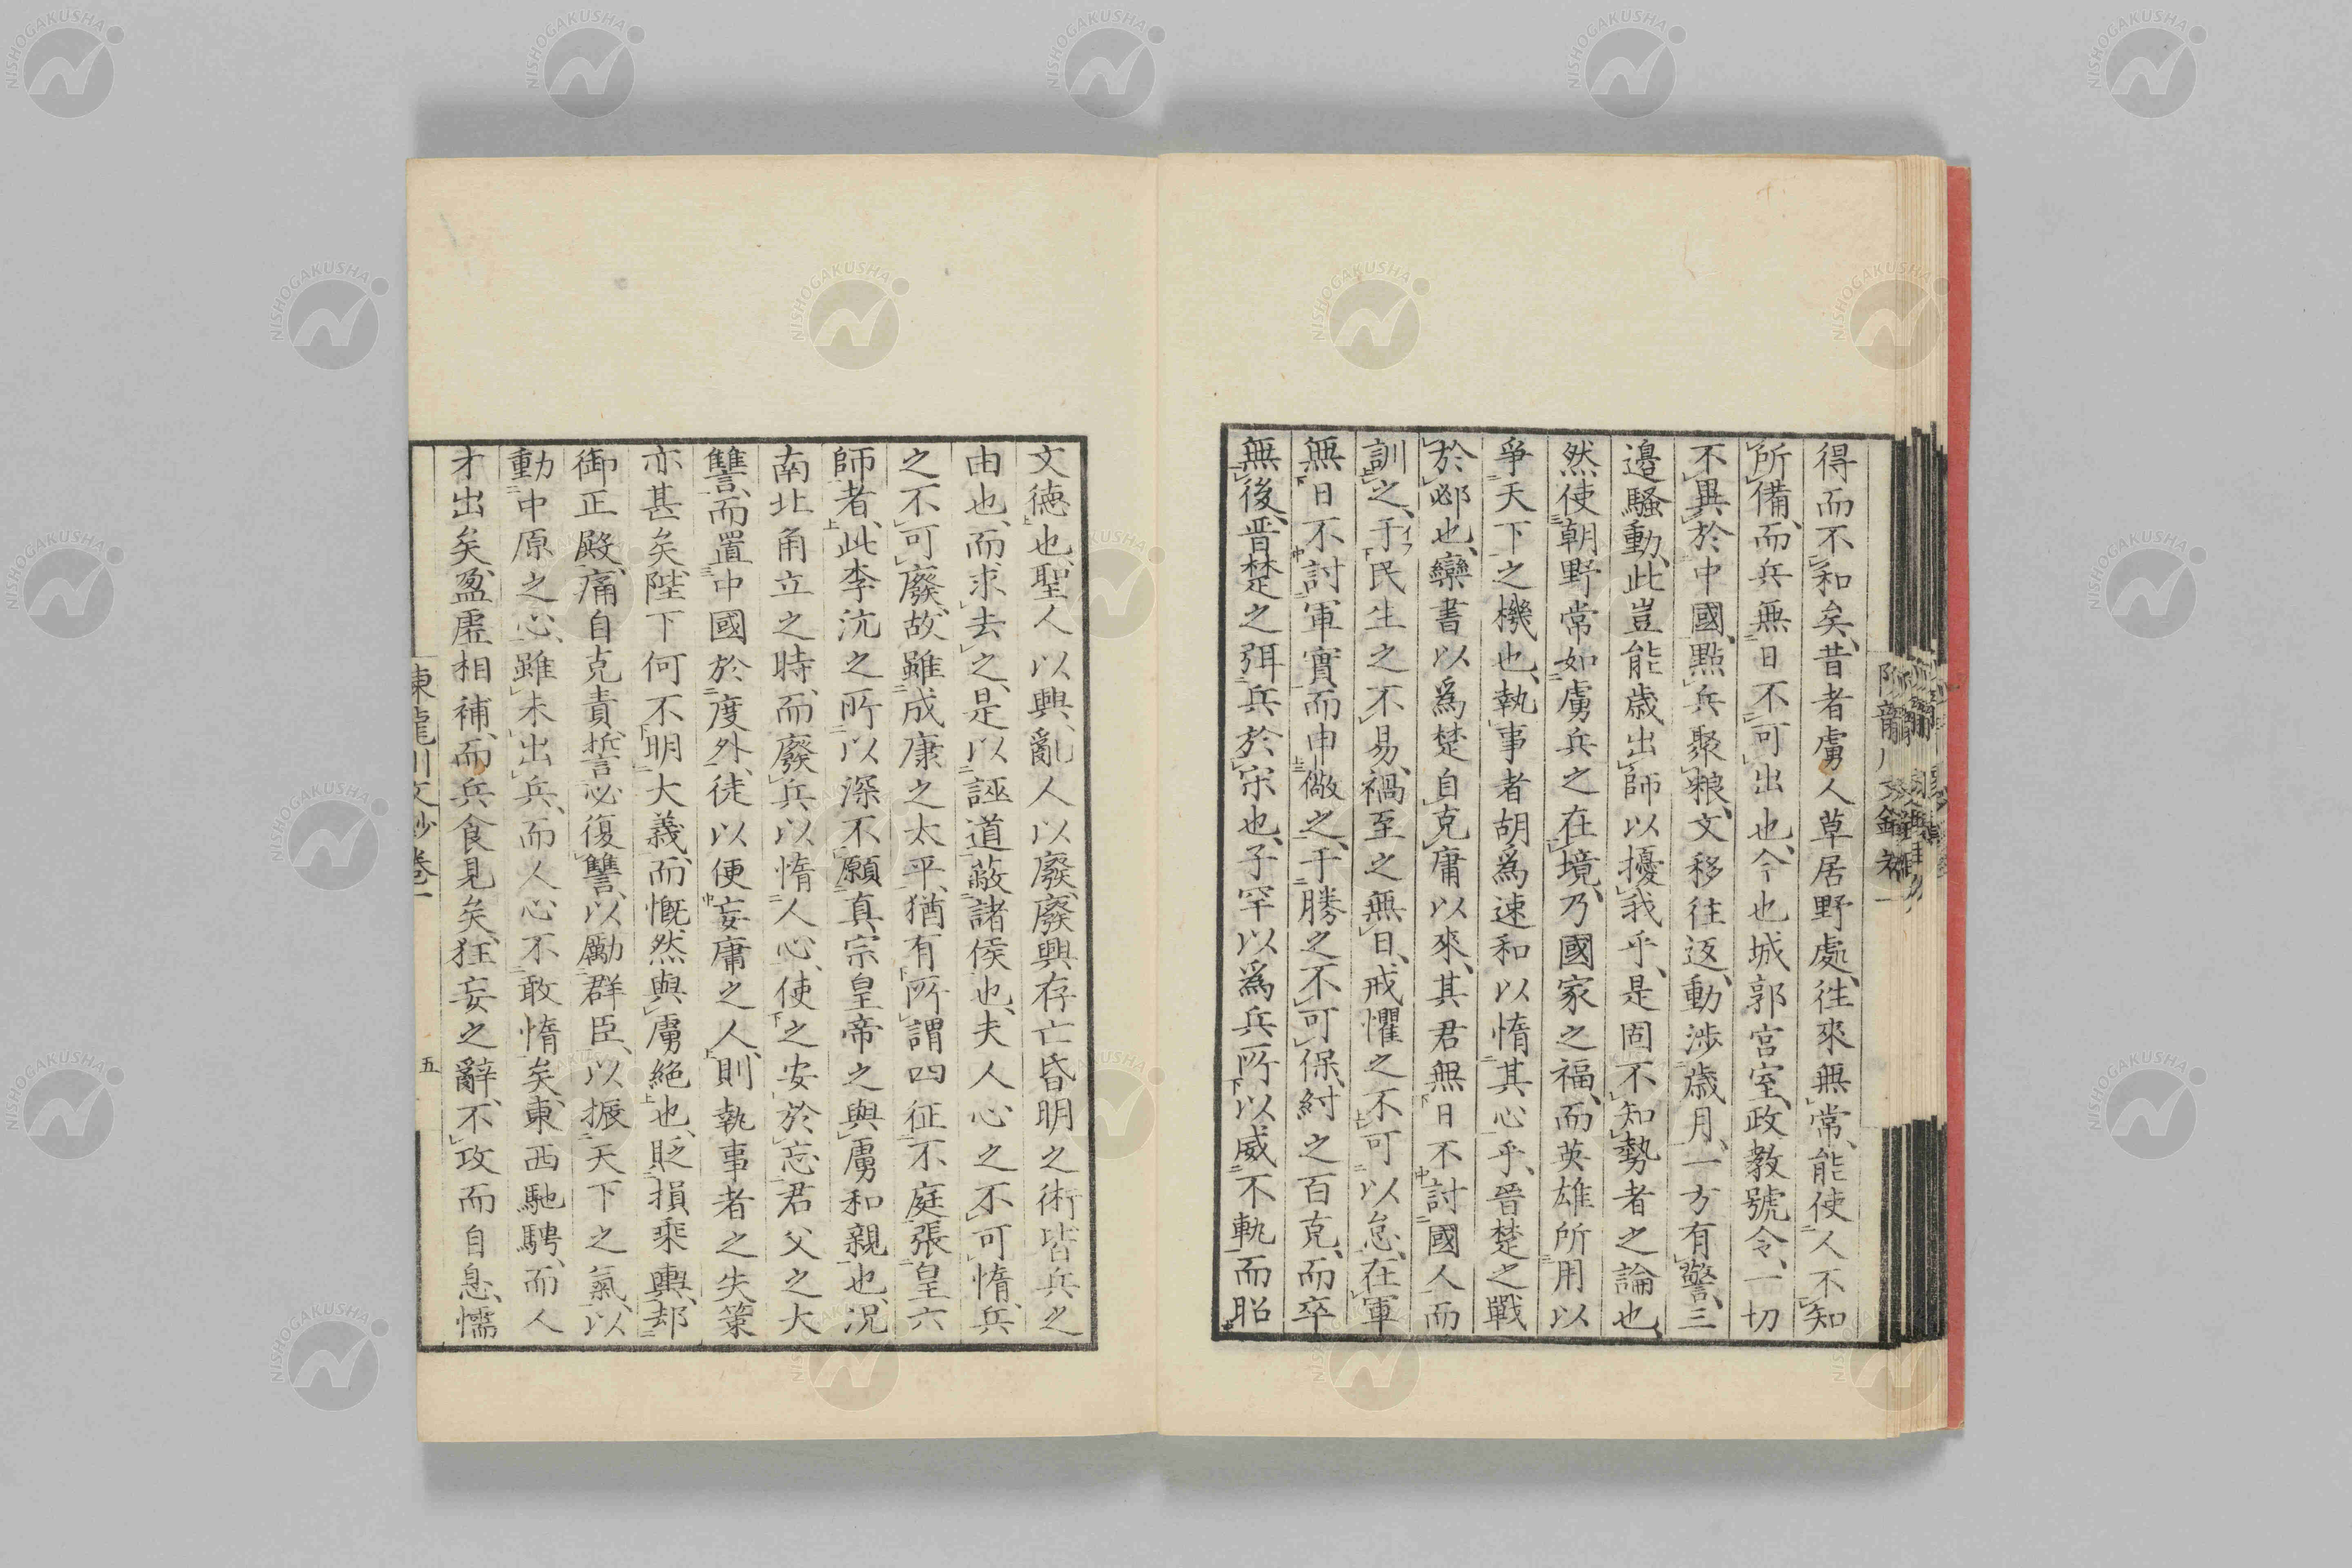 得而不和矣、昔者虜人草居野處、往來無常、能使人不知
所備、而兵無日不可出也、今也城郭宮室、政教號令、一切
不異於中國、點兵聚粮、文移往返、動涉歲月、一方有警、三
邊騷動、此豈能歲出師以擾我乎、是固不知勢者之論也、
然使朝野常如虜兵之在境、乃國家之福、而英雄所用以
爭天下之機也、執事者胡爲速和以惰其心乎、晉楚之戰
於邲也、欒書以爲楚自克庸以來、其君無日不討國人而
訓之、于民生之不易、禍至之無日、戒懼之不可以怠、在軍
無日不討軍實而申儆之、于勝之不可保、紂之百克、而卒
無後、晉楚之弭兵於宋也、子罕以爲兵所以威不軌而昭
文德也、聖人以興、亂人以廢、廢興存亡昏明之術、皆兵之
由也、而求去之、是以誣道蔽諸侯也、夫人心之不可惰、兵
之不可廢、故雖成康之太平、猶有所謂四征不庭、張皇六
師者、此李沆之所以深不願真宗皇帝之與虜和親也、況
南北角立之時、而廢兵以惰人心、使之安於忘君父之大
讐、而置中國於度外、徒以便妄庸之人、則執事者之失策
亦甚矣、陛下何不明大義、而慨然與虜絕也、貶損乘輿、却
御正殿、痛自克責、誓必復讐、以勵群臣、以振天下之氣、以
動中原之心、雖未出兵、而人心不敢惰矣、東西馳騁、而人
才出矣、盈虛相補、而兵食見矣、狂妄之辭、不攻而自息、懦
陳龍川文鈔 卷一
五
NISHOGAKUSHA